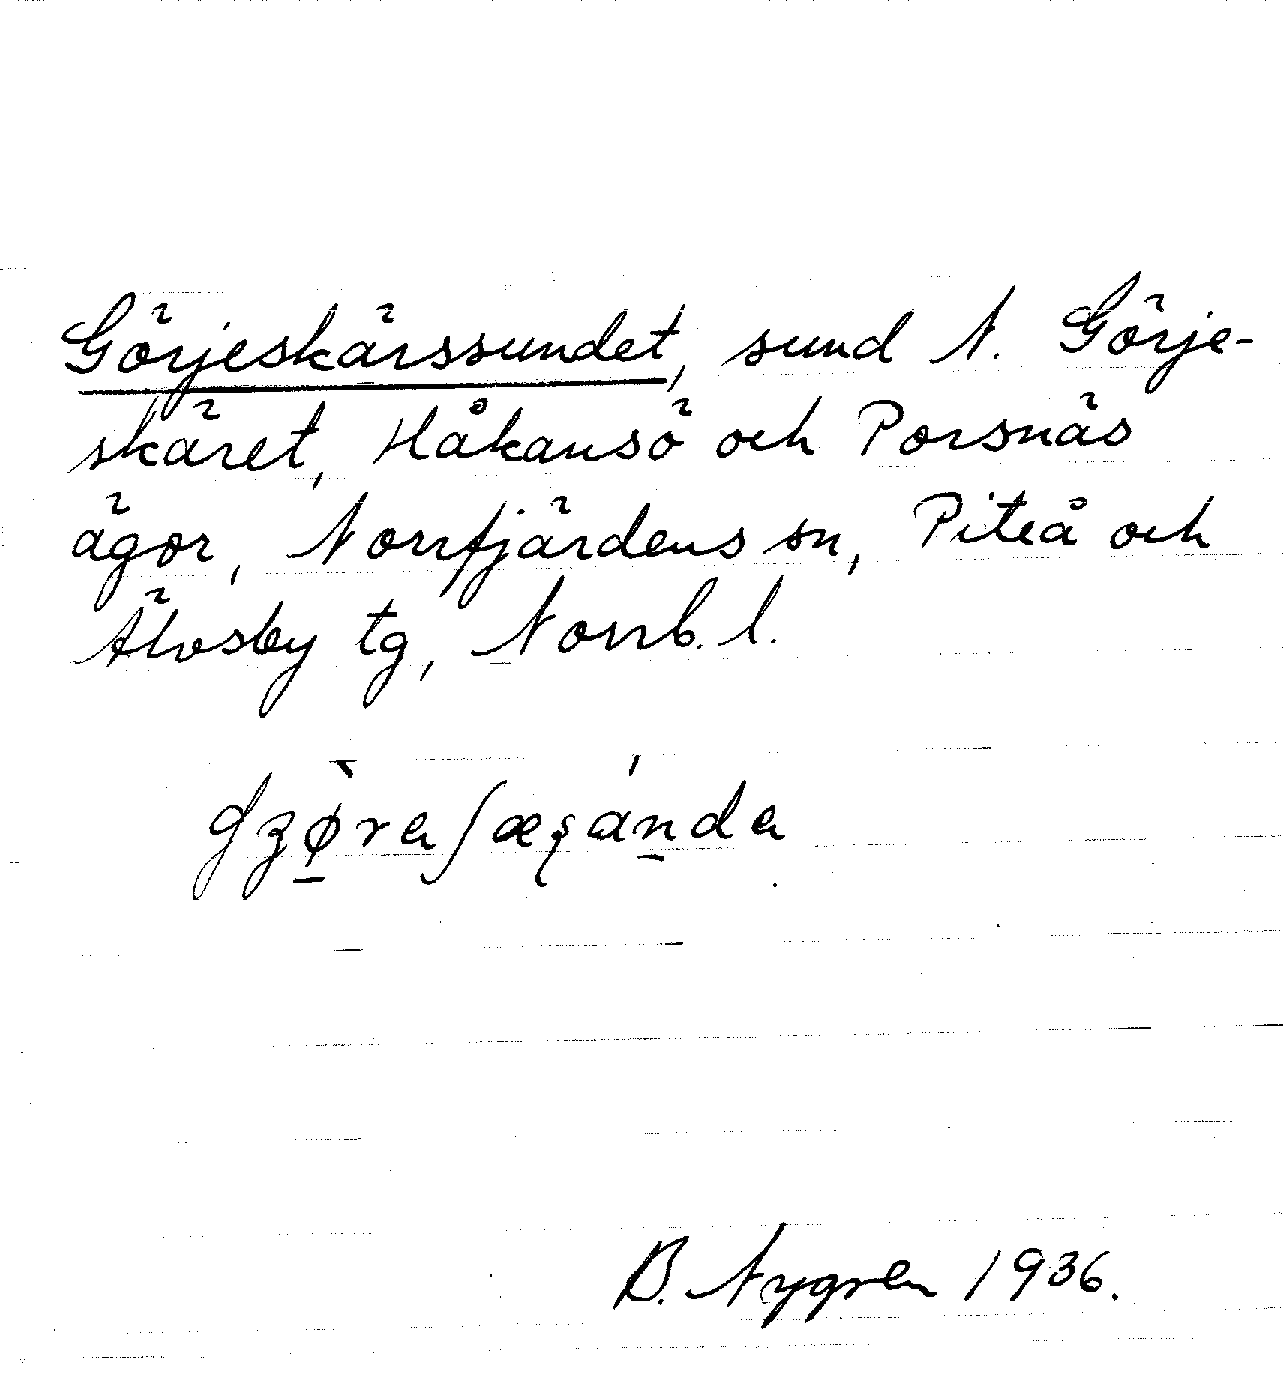 Görjeskärssundet, sund N. Görje-
skäret, Håkansö och Porsnäs
ägor, Norrfjärdens sn, Piteå och
Älvsby tg, Norrb. l.
B. Nygren 1936.